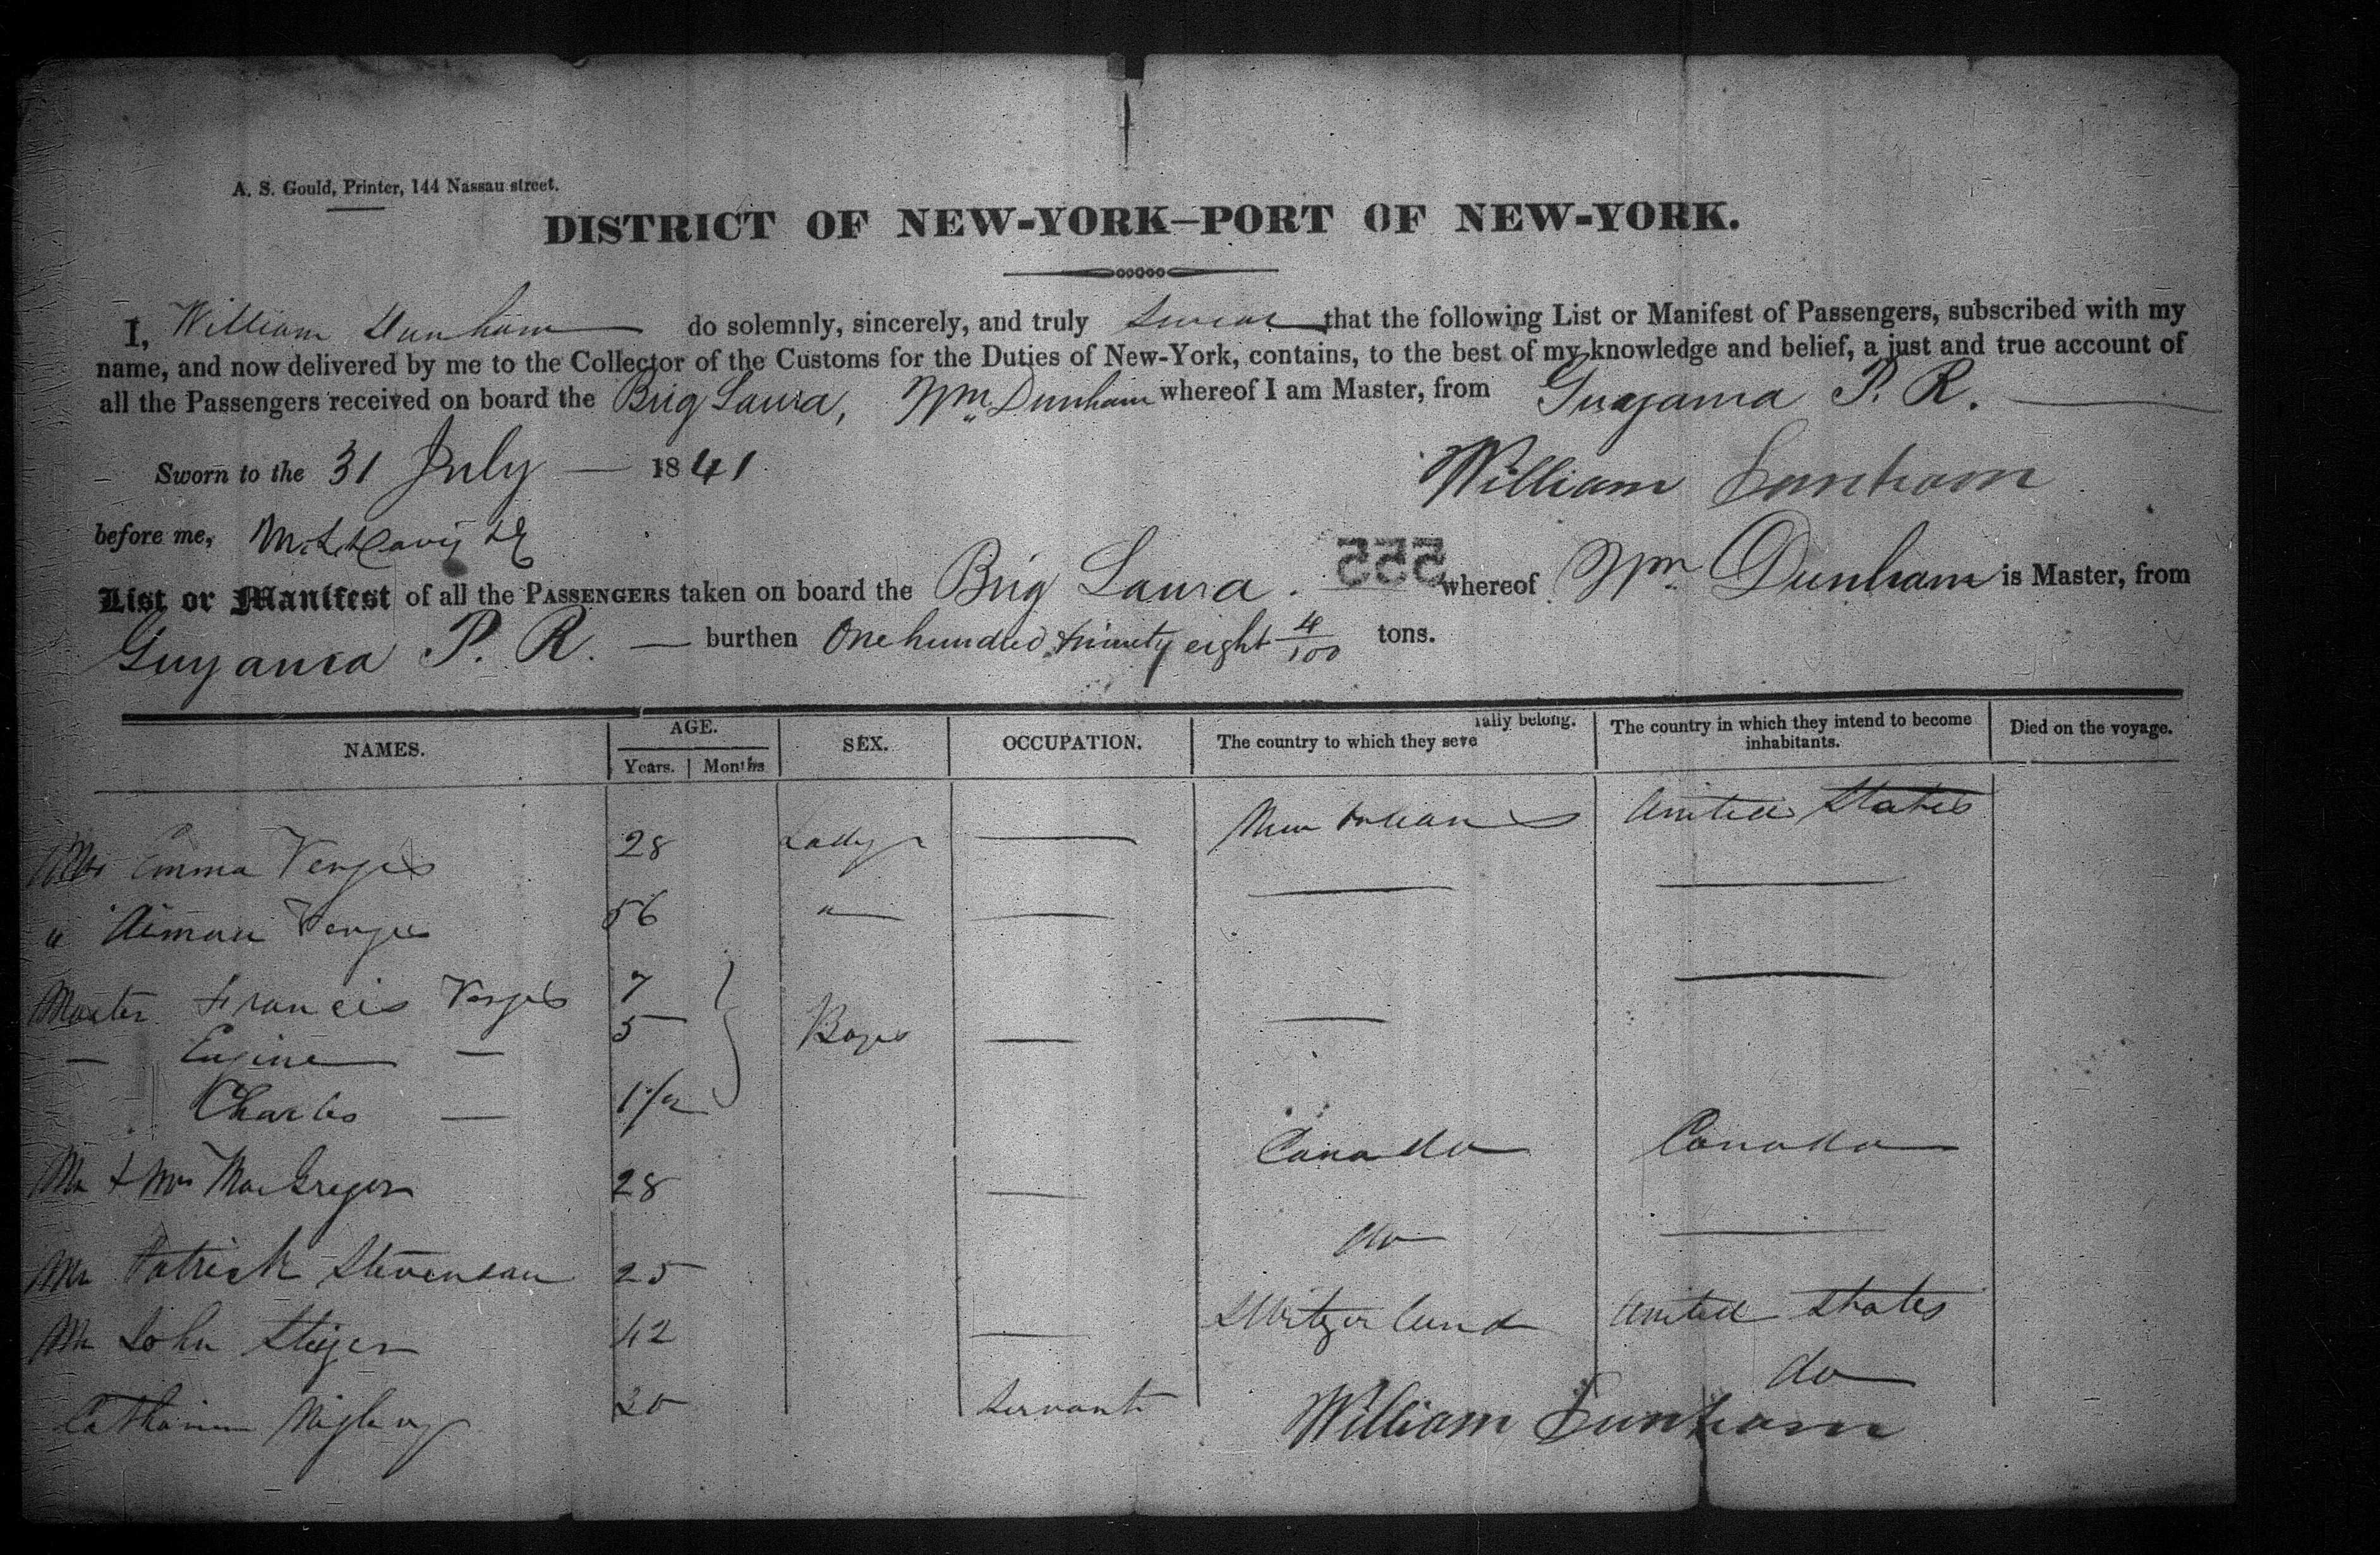 A. S. Gould, Printer, 144 Nassau street.
DISTRICT OF NEW-YORK—PORT OF NEW-YORK.
I, William Dunham do solemnly, sincerely, and truly swear that the following List or Manifest of Passengers, subscribed with my
name, and now delivered by me to the Collector of the Customs for the Duties of New-York, contains, to the best of my knowledge and belief, a just and true account of
all the Passengers received on board the Brig Laura, Wm Dunham whereof I am Master, from Guayama P. R.
Sworn to the 31 July — 1841
William Dunham
before me,
List or Manifest of all the PASSENGERS taken on board the Brig Laura. 555 whereof Wm Dunham is Master, from
Guyama P. R. — burthen One hundred & ninety eight 4/100 tons.
NAMES. AGE. Years. Months SEX. OCCUPATION. The country to which they severally belong. The country in which they intend to become inhabitants. Died on the voyage.
Mrs Emma Verges 28 Lady — New Orleans United States
" Verges 56 " — — —
Master Francis Verges 7 —
— Eugine — 5 Boys — —
Charles — 1 1/2
Mr & Mrs MacGregor 28 — Canada Canada
Mr Patrick Stevenson 25 do —
Mr John Steiger 42 — Switzerland United States
Catharine 20 Servant do
William Dunham